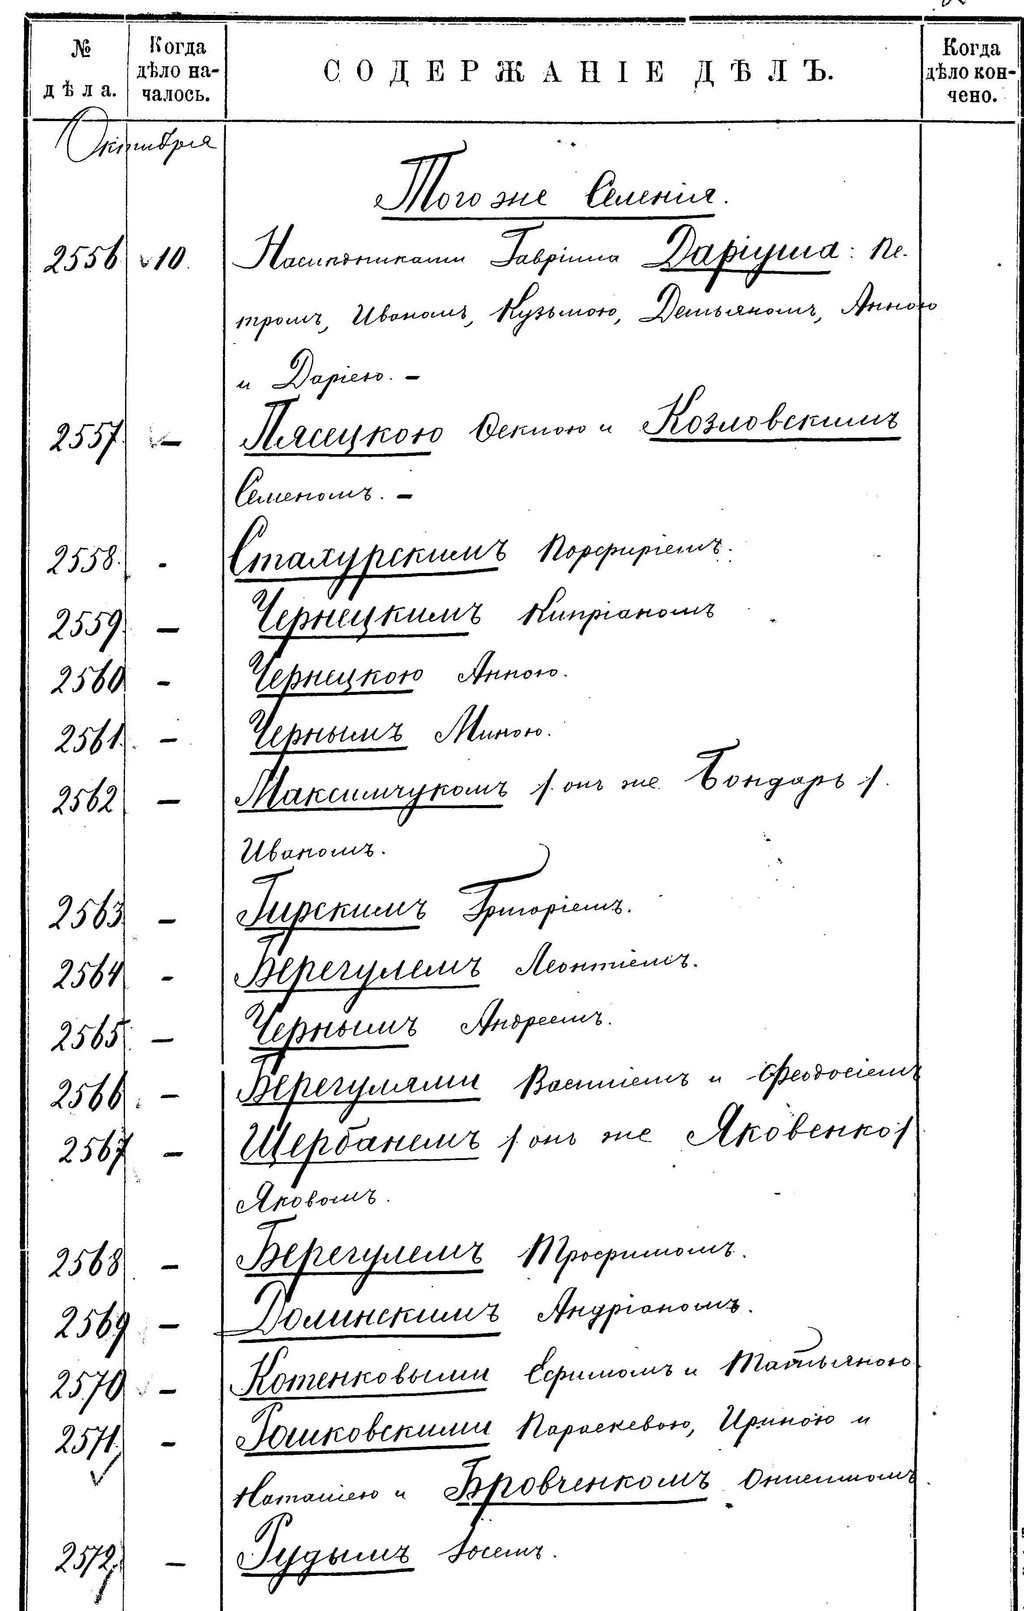 № дѣла.
Когда дѣло началось.
СОДЕРЖАНІЕ ДѢЛЪ.
Когда дѣло кончено.
Октября
Того же Селенія.
2556 10. Наслѣдниками Гавріила Даріуша: Пе-
тромъ, Иваномъ, Кузьмою, Демьяномъ, Анною
и Даріею. –
2557 – Пясецкою Феклою и Козловскимъ
Семеномъ. –
2558. - Стахурскимъ Порфиріемъ.
2559. – Чернецкимъ Кипріаномъ
2560 - Чернецкою Анною.
2561. – Чернымъ Миною.
2562 – Максимчукомъ /. онъ же Бондарь /.
Иваномъ.
2563 – Гирскимъ Григоріемъ.
2564 - Берегулемъ Леонтіемъ.
2565 – Чернымъ Андреемъ.
2566 – Берегулями Василіемъ и Феодосіемъ
2567 – Щербанемъ /. онъ же Яковенко /.
Яковомъ.
2568 – Берегулемъ Трофимомъ.
2569 – Долинскимъ Андріаномъ.
2570 – Котенковыми Ефимомъ и Татьяною
2571. - Рашковскими Параскевою, Ириною и
Наталіею и Бровченкомъ
2572. – Рудымъ